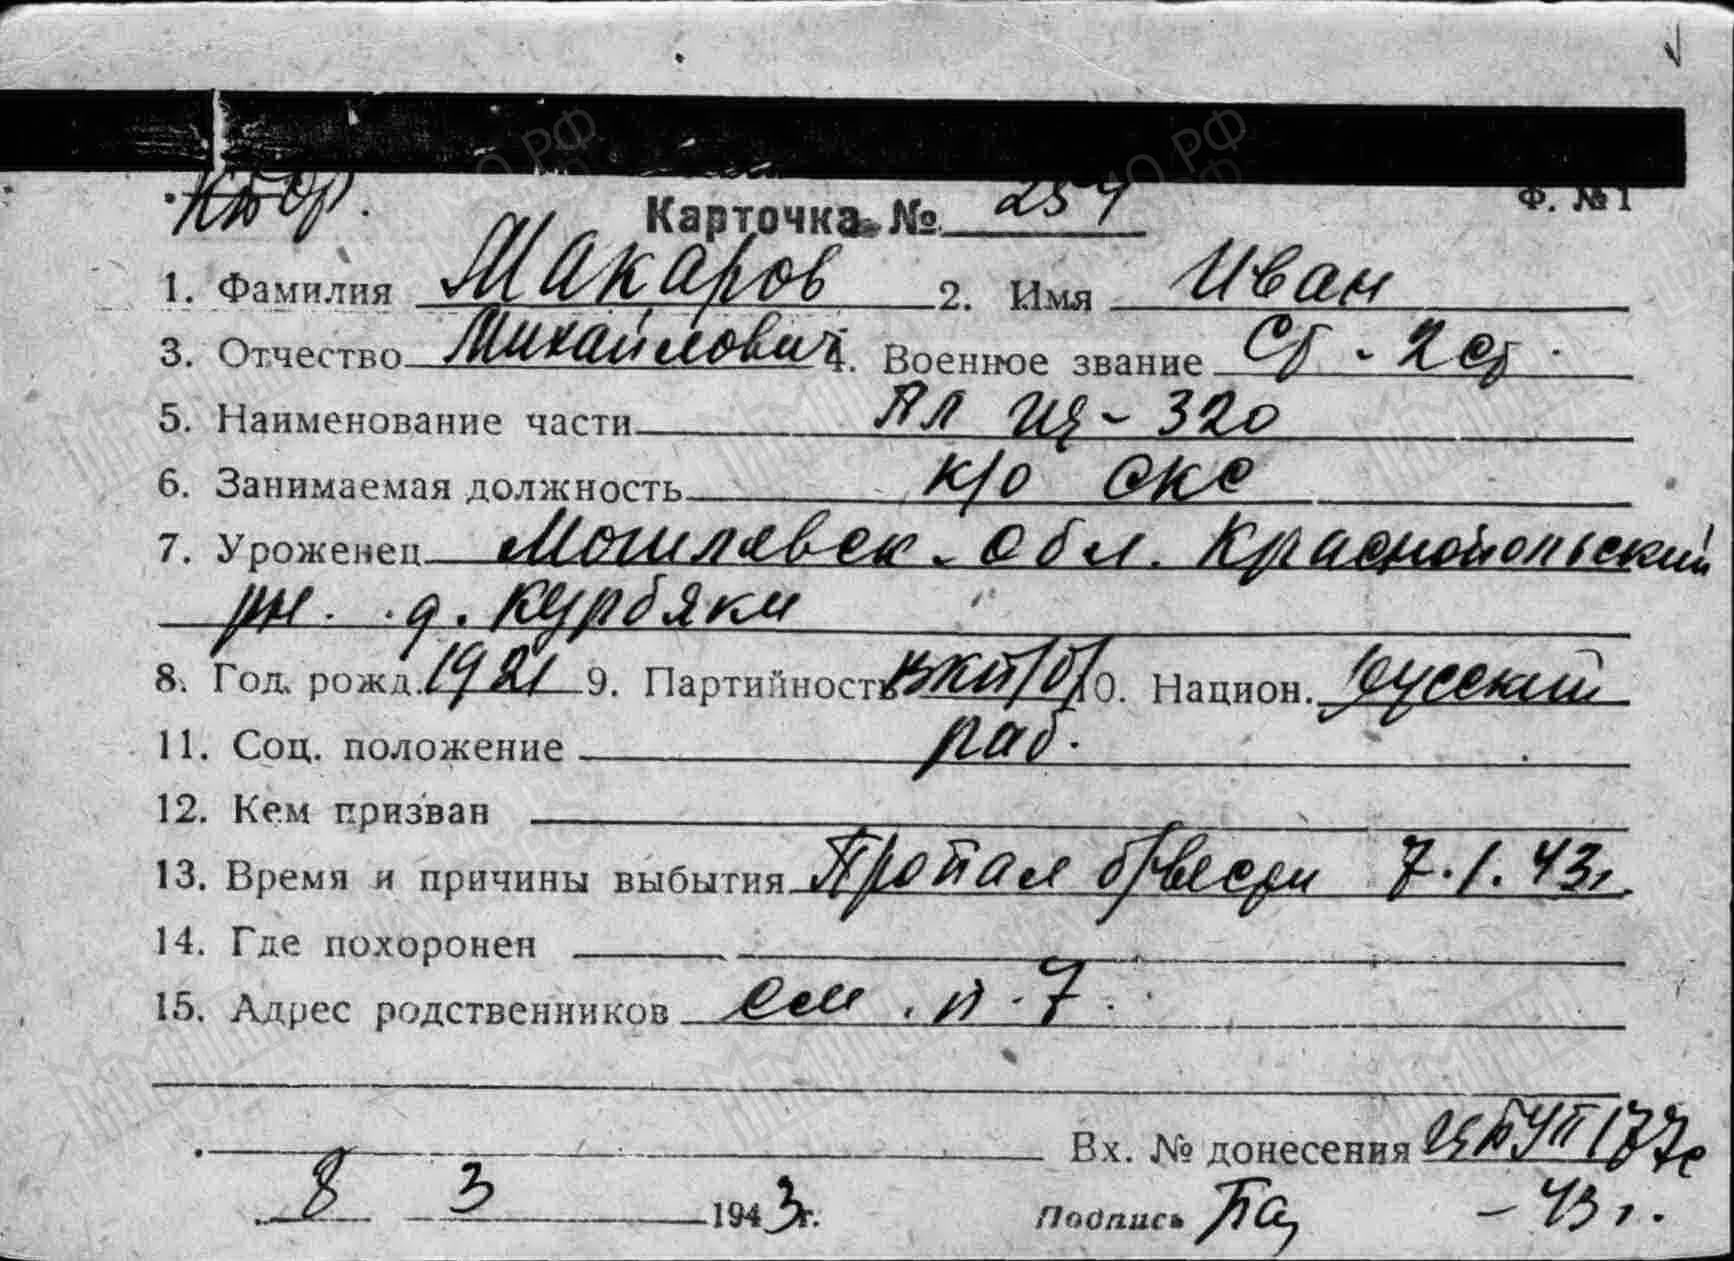 КБФ.
Карточка № 254 Ф. № 1
1. Фамилия Макаров 2. Имя Иван
3. Отчество Михайлович 4. Военное звание Ст - 2 ст.
5. Наименование части ПЛ Щ-320
6. Занимаемая должность к/о СКС
7. Уроженец Могилевск. обл. Краснопольский
рн. д. Курбяки
8. Год. рожд. 1921 9. Партийность ВКП/б/ 10. Национ. русский
11. Соц. положение раб.
12. Кем призван
13. Время и причины выбытия Пропал б/вести 7.1.43г.
14. Где похоронен
15. Адрес родственников см. п. 7.
Вх. № донесения 177с
8 3 1943г. Подпись - 43 г.